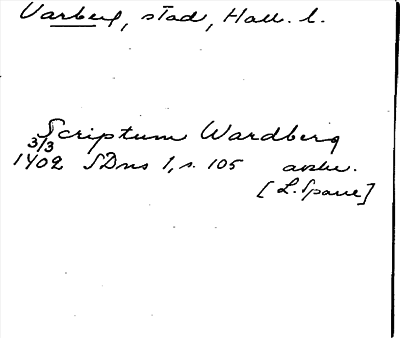 Varberg, stad, Hall. l.
Scriptum Wardberg
3/3
1402 SDns 1, s. 105 avskr.
[L. Sparre]